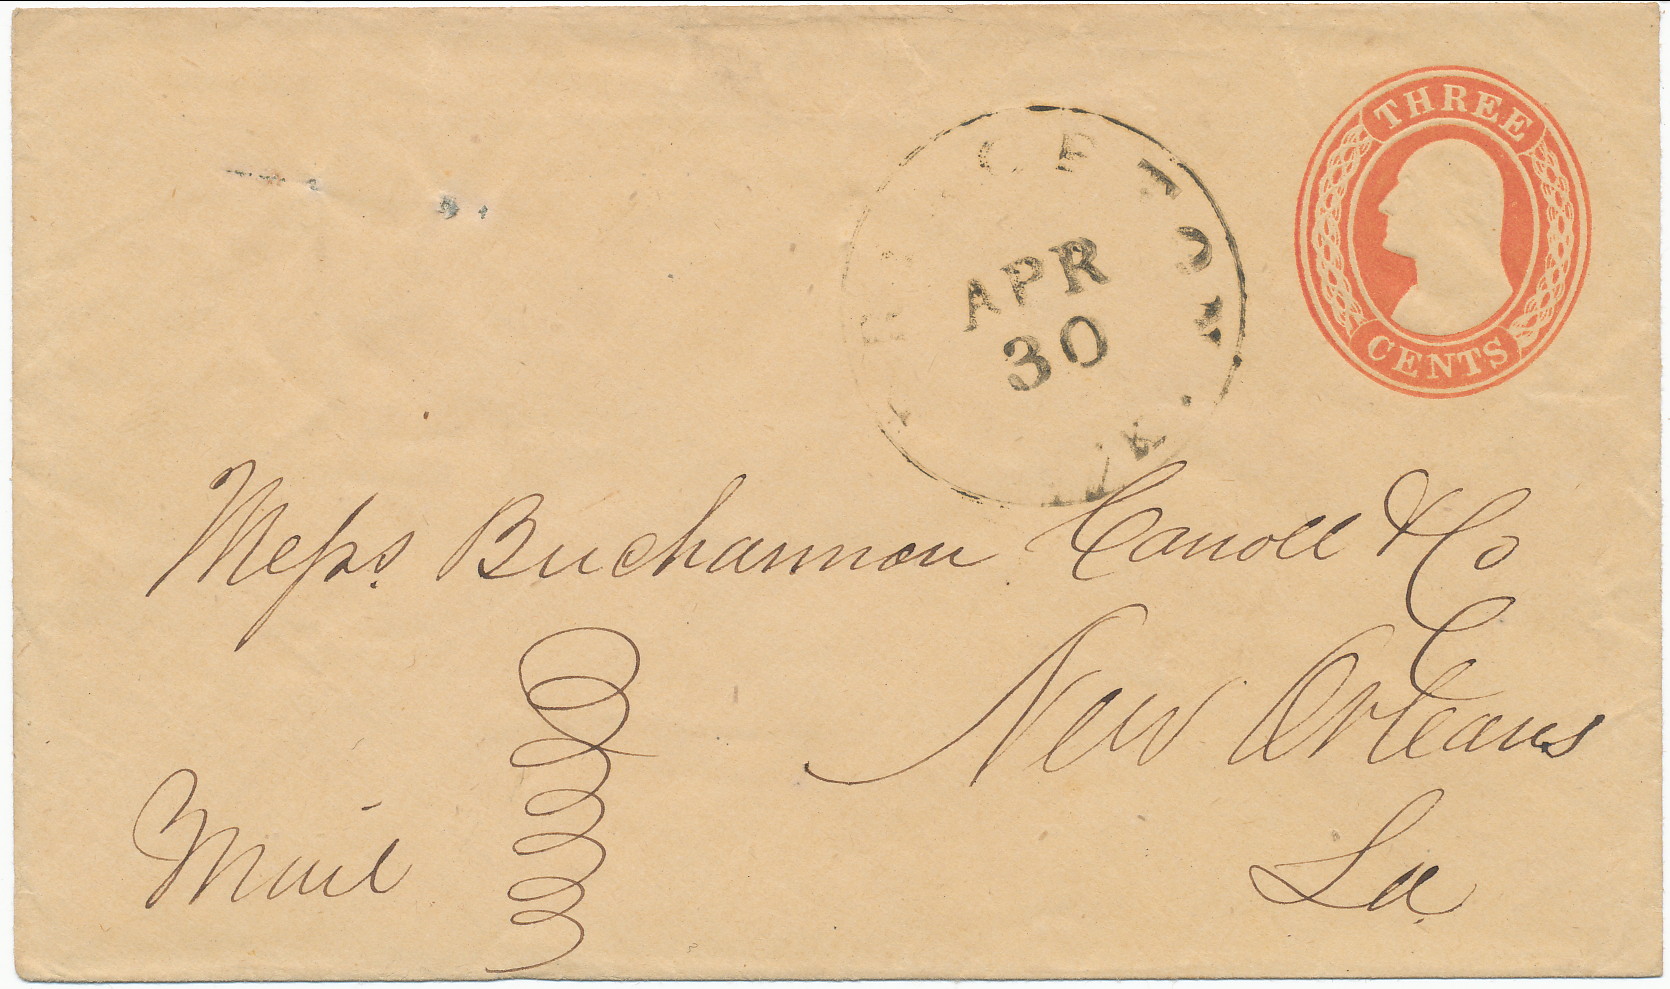 THREE
CENTS
PRINCETON
APR
30
Ky.
Messrs. Buchannon Carroll & Co
New Orleans
La.
Mail